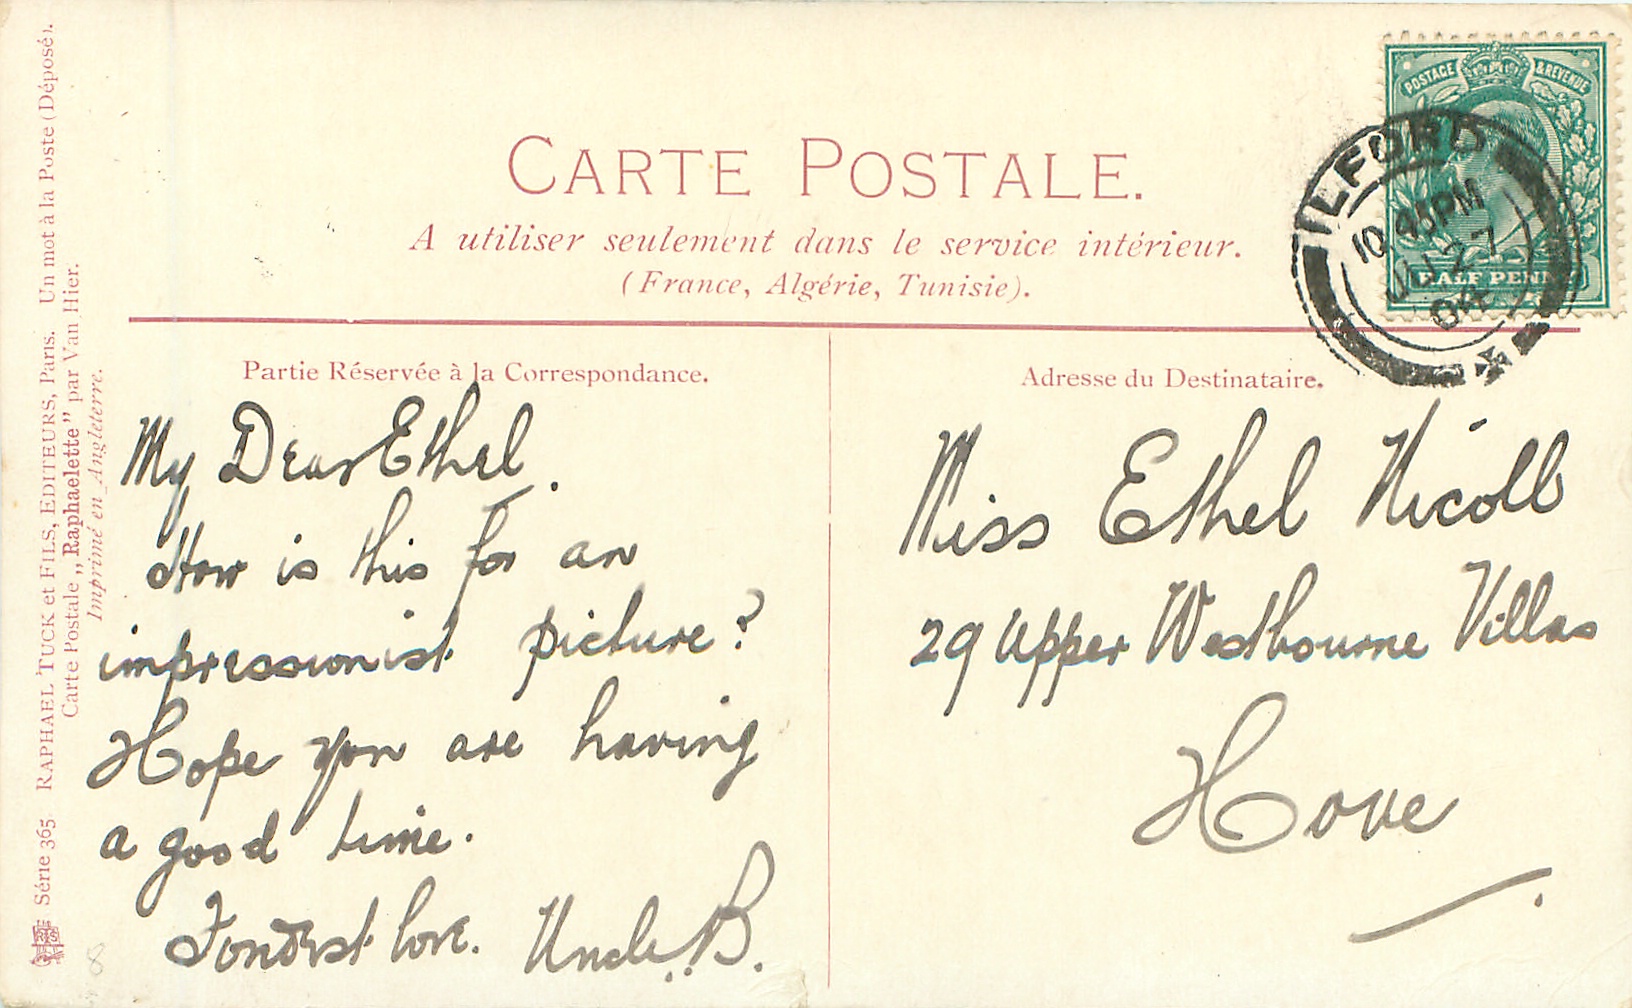 CARTE POSTALE.
A utiliser seulement dans le service intérieur.
(France, Algérie, Tunisie).
POSTAGE & REVENUE
HALF PENNY
ILFORD
10 45 PM
JU 27
04
Partie Réservée à la Correspondance.
My Dear Ethel.
How is this for an
impressionist picture?
Hope you are having
a good time.
Fondest love. Uncle B.
Adresse du Destinataire.
Miss Ethel Nicoll
29 Upper Westbourne Villas
Hove
Série 365 RAPHAEL TUCK et FILS, EDITEURS, Paris. Un mot à la Poste (Déposé).
Carte Postale „Raphaelette" par Van Hier.
Imprimé en Angleterre.
8